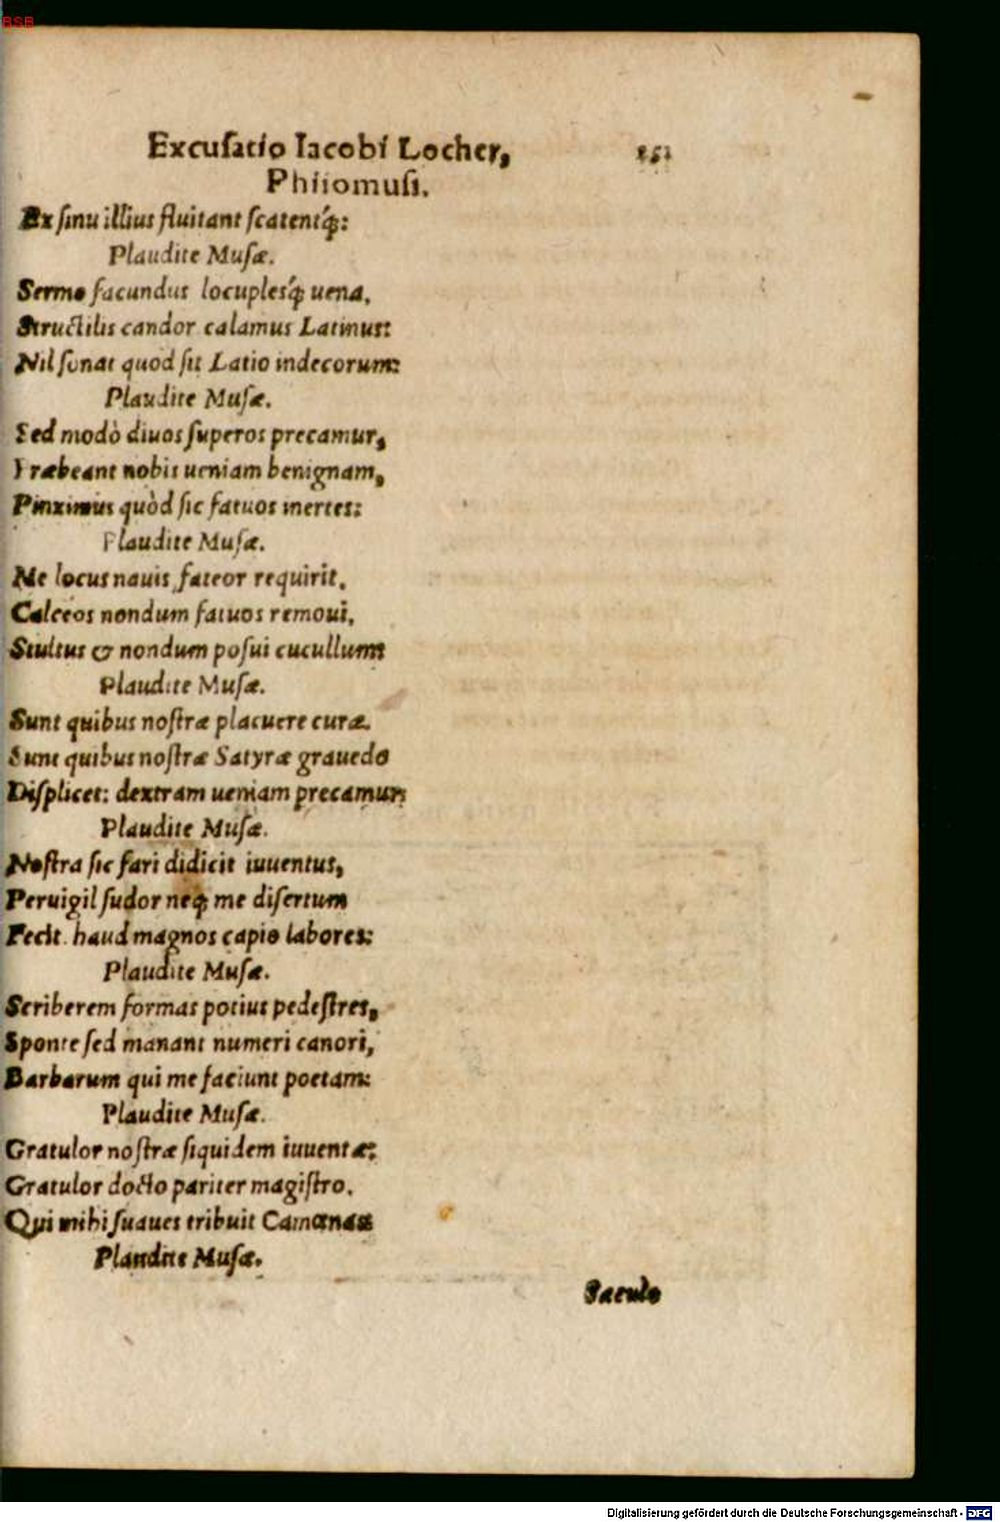 BSB
Excuſatio Iacobi Locher, 151
Philomuſi.
Ex ſinu illius fluitant ſcatentq́;:
Plaudite Muſæ.
Sermo facundus locuplesq́; uena,
Structilis candor calamus Latinus:
Nil ſonat quod ſit Latio indecorum:
Plaudite Muſæ.
Sed modò diuos ſuperos precamur,
Præbeant nobis ueniam benignam,
Pinximus quòd ſic fatuos inertes:
Plaudite Muſæ.
Me locus nauis fateor requirit,
Calceos nondum fatuos remoui,
Stultus & nondum poſui cucullum:
Plaudite Muſæ.
Sunt quibus noſtræ placuere curæ.
Sunt quibus noſtræ Satyræ grauedo
Diſplicet: dextram ueniam precamur:
Plaudite Muſæ.
Noſtra ſic fari didicit iuuentus,
Peruigil ſudor neq; me diſertum
Fecit. haud magnos capio labores:
Plaudite Muſæ.
Scriberem formas potius pedeſtres,
Sponte ſed manant numeri canori,
Barbarum qui me faciunt poetam:
Plaudite Muſæ.
Gratulor noſtræ ſiquidem iuuentæ:
Gratulor docto pariter magiſtro,
Qui mihi ſuaues tribuit Camœnas
Plaudite Muſæ.
Sæcula
Digitalisierung gefördert durch die Deutsche Forschungsgemeinschaft - DFG